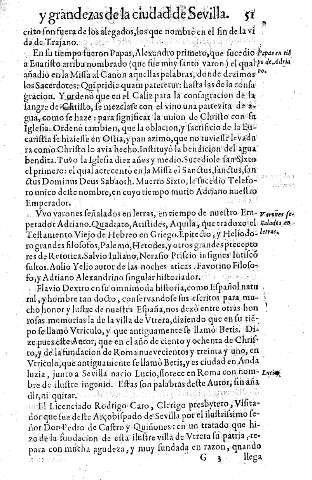 y grandezas de la ciudad de Sevilla. 51
crito son fuera de los alegados, los que nombrè en el fin de la vi
da de Trajano.
En su tiempo fueron Papas, Alexandro primero, que sucedió
a Euaristo arriba nombrado (que fue muy santo varon) el qual
añadio en la Missa al Canon aquellas palabras, donde dezimos
los Sacerdotes: Qui pridie quam pateretur: hasta las de la consa
gracion. Y ordenò que en el Caliz para la consagracion de la
sangre de Christo, se mezclasse con el vino una partezita de a-
gua, como se haze: para significar la union de Christo con su
Iglesia. Ordenò tambien, que la oblacion, y sacrificio de la Eu-
caristia se hiziesse en Ostia, y pan azimo, que no tuviesse levadu
ra como Christo lo avia hecho. Instituyò la bendicion del agua
bendita. Tuvo la Iglesia diez años y medio. Sucediole san Sixto
el primero: el qual acrecento en la Missa el Sanctus, sanctus, san
ctus Dominus Deus Sabaoth. Muerto Sixto, le sucedio Telesfo
ro unico deste nombre, en cuyo tiempo murio Adriano nuestro
Emperador.
Vvo varones señalados en letras, en tiempo de nuestro Em-
perador Adriano. Quadrato, Aristides, Aquila, que traduxo el
Testamento Viejo de Hebreo en Griego. Epictecto, y Heliodo-
ro grandes filosofos, Palemo, Herodes, y otros grandes precepto
res de Retorica. Salvio Iuliano, Nerasio Prisco insignes Iuriscō
sultos. Aulo Gelio autor de las noches aticas. Favorino Filoso-
fo, y Adriano Alexandrino singular historiador.
Varones se-
ñalados en
letras.
Flavio Dextro en su omnimoda historia, como Español natu
ral, y hombre tan docto, conservandose sus escritos para mu-
cho honor y lustre de nuestra España, nos dexò entre otras hon
rosas memorias la de la villa de Vtrera, diziendo que en su tiē-
po se llamò Vtriculo, y que antiguamente se llamò Betis. Di-
ze pues este Autor, que en el año de ciento y ochenta de Chris-
to, y de la fundacion de Roma nuevecientos y treinta y uno, en
Vtriculo, que antiguamente se llamò Betis, y es ciudad en Anda
luzia, junto a Sevilla nacio Lucio, florece en Roma con nom-
bre de ilustre ingenio. Estas son palabras deste Autor, sin aña
dir, ni quitar.
Lucio
El Licenciado Rodrigo Caro, Clerigo presbytero, Visita-
dor que fue deste Arçobispado de Sevilla por el ilustrissimo se-
ñor Don Pedro de Castro y Quiñones: en un tratado que hi-
zo de la fundacion de esta ilustre villa de Vtrera su patria, re-
para con mucha agudeza, y muy fundada en razon, quando
G 3 llega